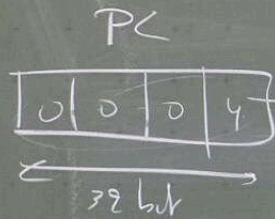 PC
0 0 0 4
32 bit